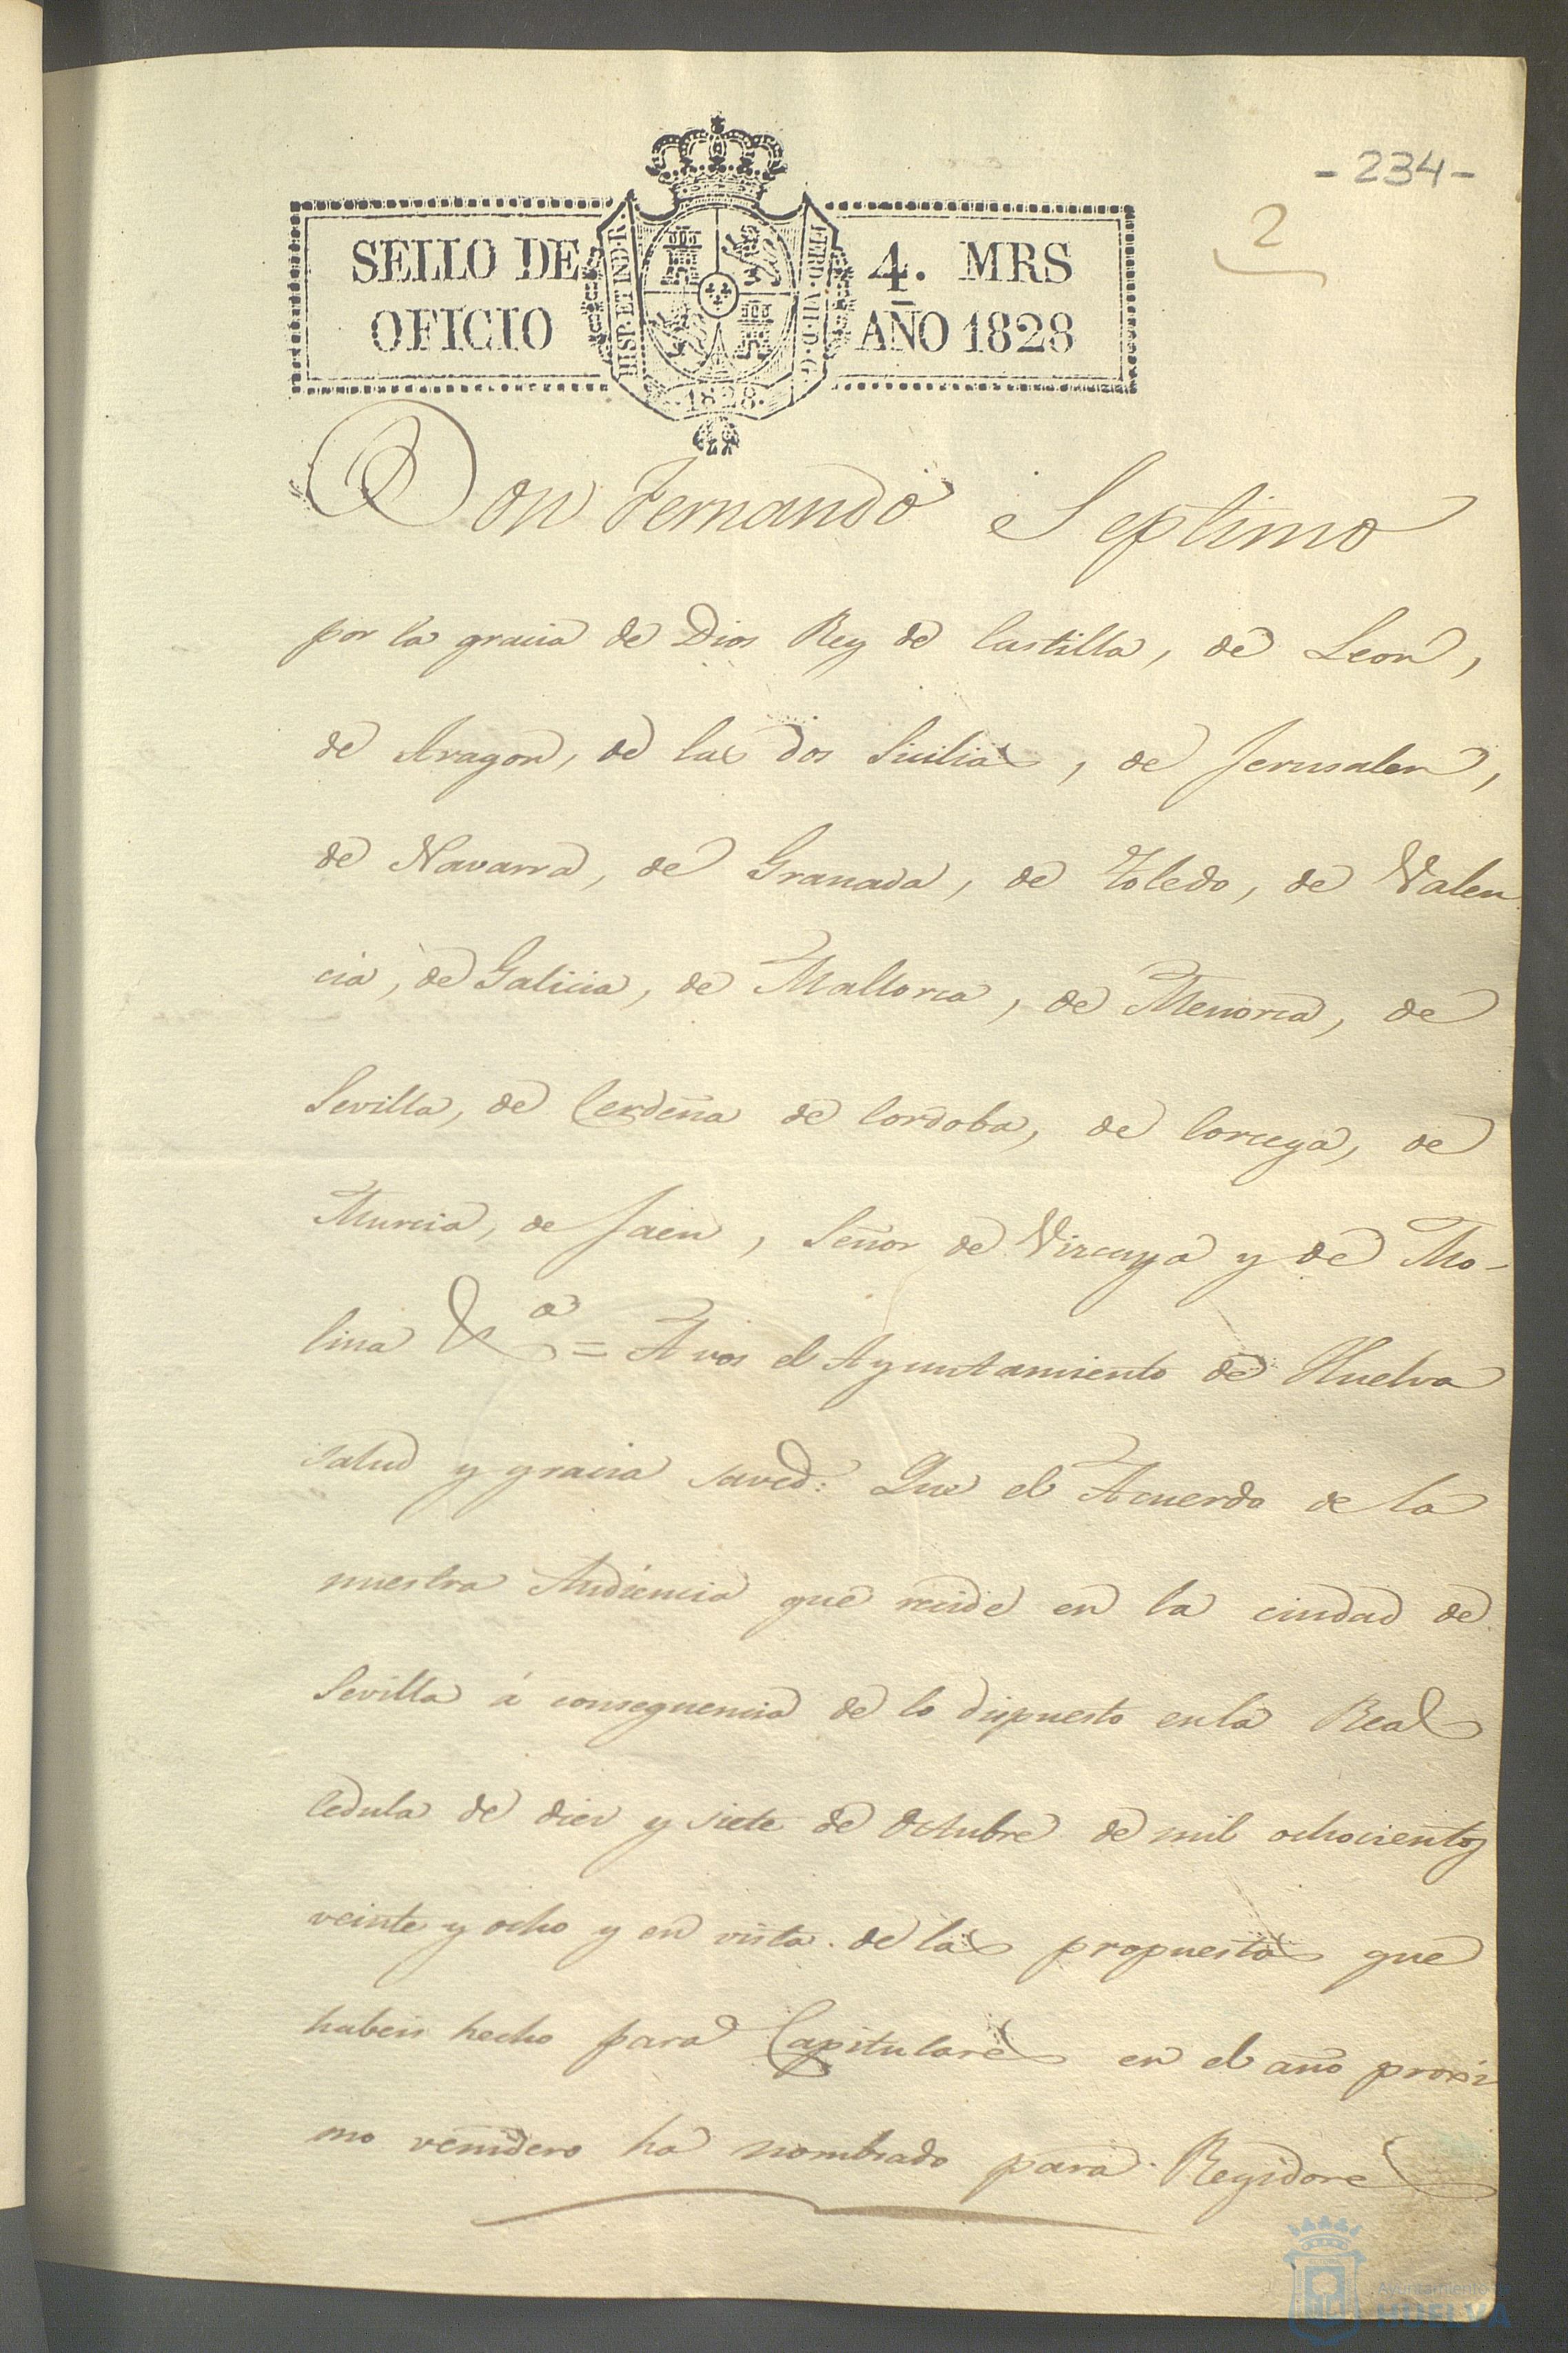 - 234 -
2
SELLO DE 4. MRS
OFICIO AÑO 1828
HISP. ET IND. R. FERD. VII. D. G.
1828.
Don Fernando Septimo
por la gracia de Dios Rey de Castilla, de Leon,
de Aragon, de las dos Sicilias, de Jerusalen,
de Navarra, de Granada, de Toledo, de Valen
cia, de Galicia, de Mallorca, de Menorca, de
Sevilla, de Cerdeña de Cordoba, de Corcega, de
Murcia, de Jaen, Señor de Vizcaya y de Mo-
lina &a = A vos el Ayuntamiento de Huelva
salud y gracia saved: Que el Acuerdo de la
nuestra Audiencia que reside en la ciudad de
Sevilla á consequencia de lo dispuesto en la Real
Cedula de diez y siete de Octubre de mil ochocientos
veinte y ocho y en vista de las propuestas que
habeis hecho para Capitulares en el año proxi
mo venidero ha nombrado para Regidores
Ayuntamiento de
HUELVA